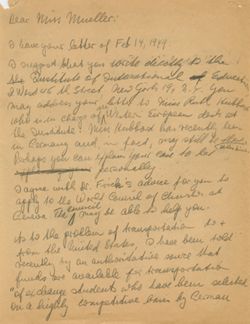 Dear Miss Mueller:
I have your letter of Feb 14, 1949.
I suggest that you write directly to the
Institute of International Education
2 West 45th Street New York 19, N.Y. You
may address your letter to Miss Ruth Hubbard
who is in charge of Western European desk at
the Institute. Miss Hubbard has recently been
in Germany and, in fact, may still be
Perhaps you can explain your case to her
personally
I agree with Dr. advice for you to
apply to the World Council of Churches at
Geneva. They may be able to help you.
As to the problem of transportation to +
from the United States, I have been told
recently by an authoritative source that
funds are available for transportation
of exchange students who have been selected
on a highly competitive basis by German